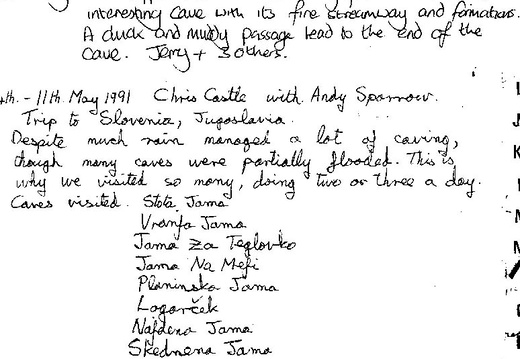 interesting cave with its fine streamway and formations.
A duck and muddy passage lead to the end of the
cave. Jerry + 3 others.
4th. - 11th. May 1991 Chris Castle with Andy Sparrow.
Trip to Slovenia, Jugoslavia.
Despite much rain managed a lot of caving,
though many caves were partially flooded. This is
why we visited so many, doing two or three a day.
Caves visited. Stota Jama
Vranja Jama
Jama Za Teglovko
Jama Na Meji
Planinska Jama
Logarček
Najdena Jama
Skednena Jama